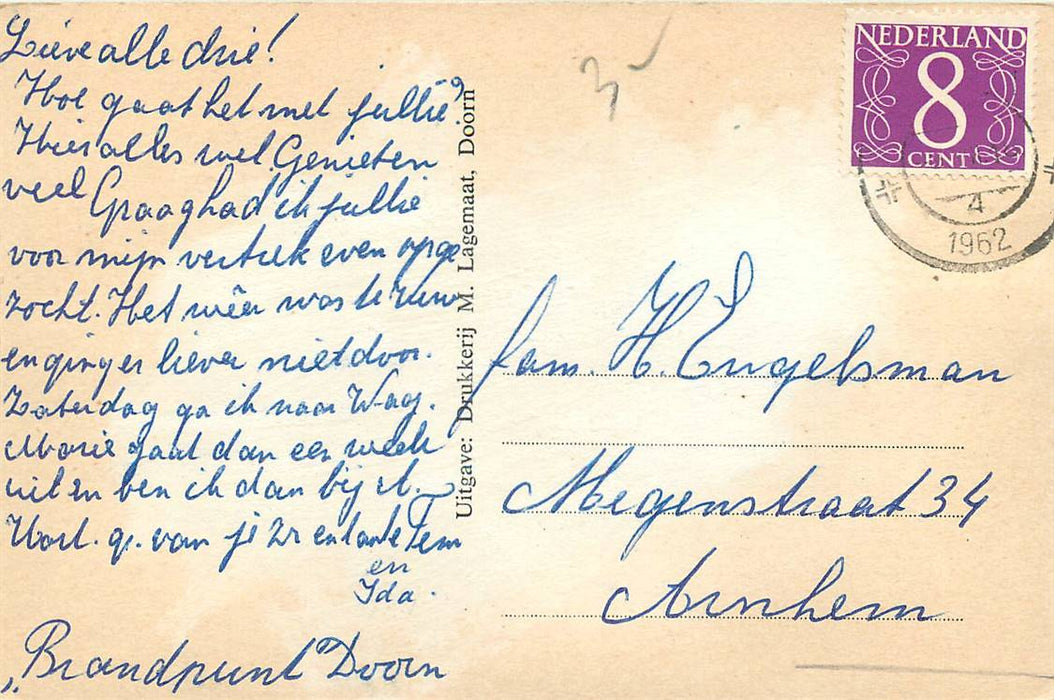 Lieve alle drie!
Hoe gaat het met jullie?
Hier alles wel. Genieten
veel Graag had ik jullie
voor mijn vertrek even opge
zocht. Het wêer was te ruw
en ging er liever niet door.
Zaterdag ga ik naar Wag.
Marie gaat dan een week
uit en ben ik dan bij
Hart. gr. van je zr en tante Fem
en
Ida.
„Brandpunt" Doorn
Uitgave: Drukkerij M. Lagemaat, Doorn
3
NEDERLAND
8
CENT
4
1962
fam. H. Engelsman
Megenstraat 34
Arnhem